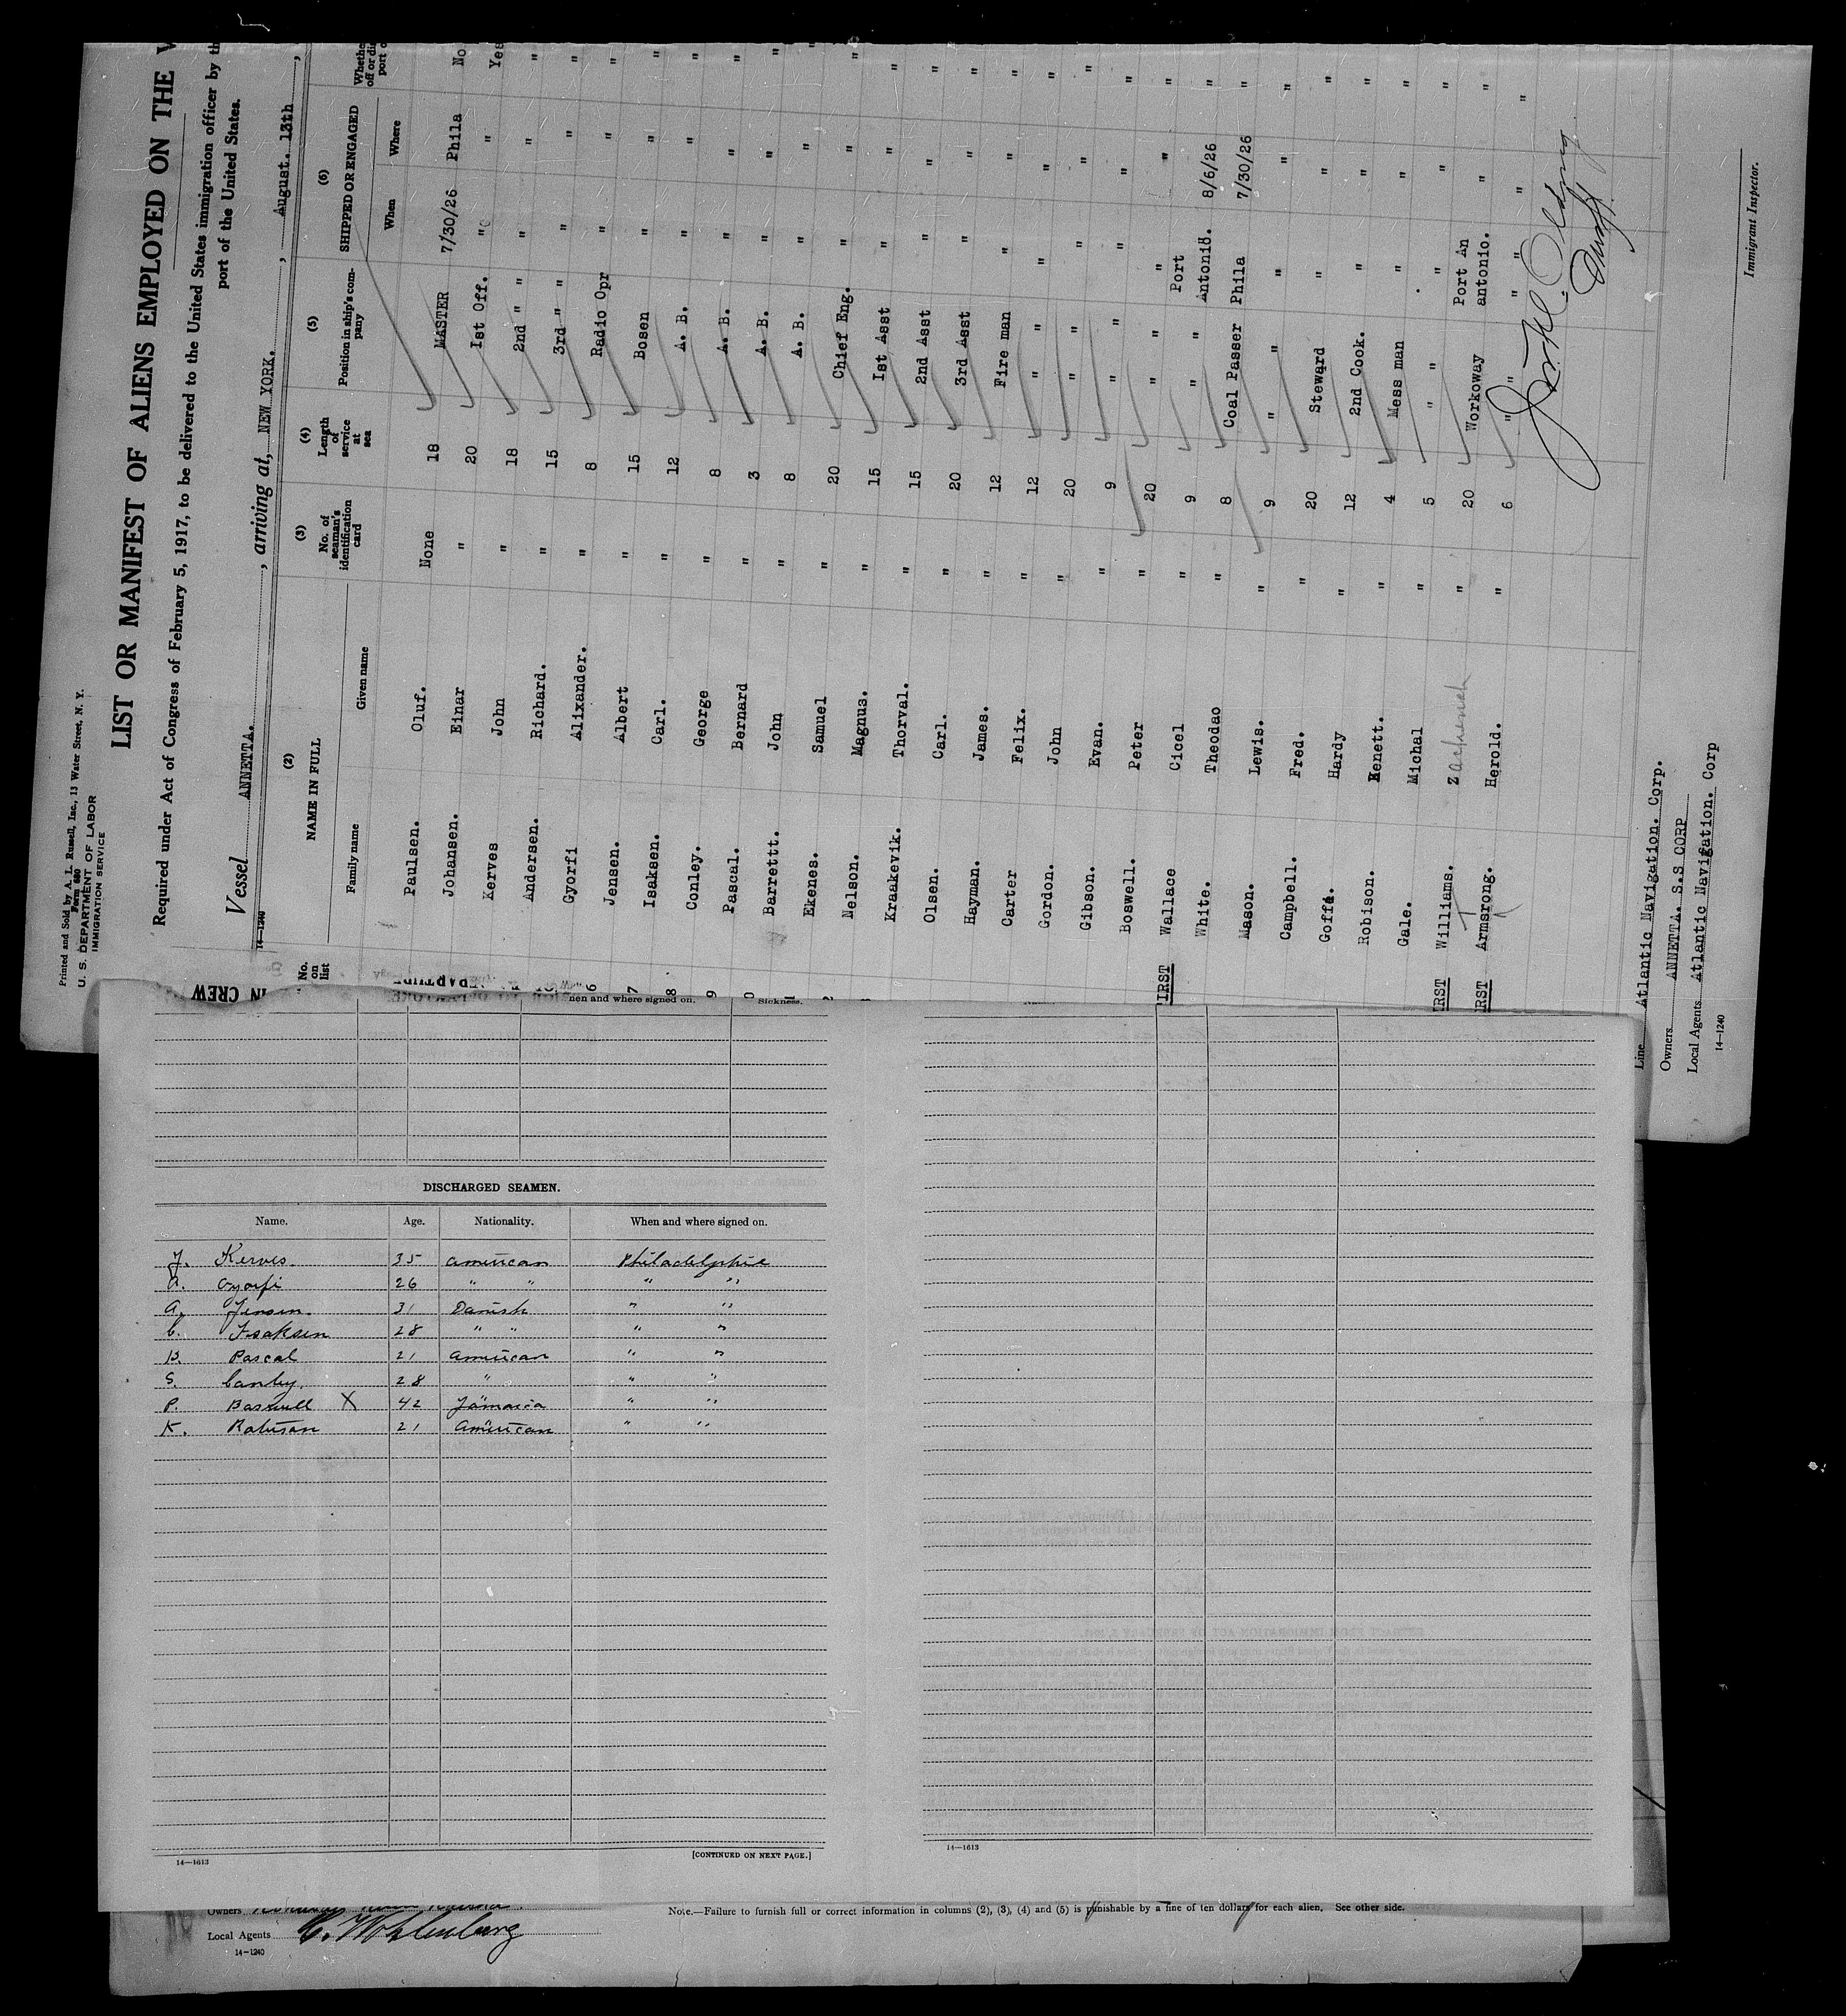 Printed and Sold by A. L. Russell, Inc., 13 Water Street, N. Y.
Form 680
U. S. DEPARTMENT OF LABOR
IMMIGRATION SERVICE
LIST OR MANIFEST OF ALIENS EMPLOYED ON THE V
Required under Act of Congress of February 5, 1917, to be delivered to the United States immigration officer by th
port of the United States.
Vessel ANNETTA. , arriving at, NEW YORK. , August. 13th ,
14—1240
No. on list
(2) NAME IN FULL
Family name Given name
(3) No. of seaman's identification card
(4) Length of service at sea
(5) Position in ship's company
(6) SHIPPED OR ENGAGED
When Where
Whethe
off or di
port o
Paulsen. Oluf. None 18 MASTER 7/30/26 Phila No
Johansen. Einar " 20 1st Off. " " Yes
Kerves John " 18 2nd " " " " "
Andersen. Richard. " 15 3rd " " " " "
Gyorfi Alixander. " 8 Radio Opr " " "
6 Jensen. Albert " 15 Bosen " " "
7 Isaksen. Carl. " 12 A. B. " " "
8 Conley. George " 8 A. B. " " "
9 Pascal. Bernard " 3 A. B. " " "
0 Barrettt. John " 8 A. B. " " "
1 Ekenes. Samuel " 20 Chief Eng. " " "
2 Nelson. Magnus. " 15 1st Asst " " "
Kraakevik. Thorval. " 15 2nd Asst " " "
Olsen. Carl. " 20 3rd Asst " " "
Hayman. James. " 12 Fire man " " "
Carter Felix. " 12 " " " " "
Gordon. John " 20 " " " " "
Gibson. Evan. " 9 " " " " "
Boswell. Peter " 20 " " " " "
IRST Wallace Cicel " 9 " " Port
White. Theodao " 8 Antonio. 8/6/26 "
Mason. Lewis. " 9 Coal Passer Phila 7/30/26 "
Campbell. Fred. " 20 " " " " "
Goffe. Hardy " 12 Steward " " "
Robison. Kenett. " 4 2nd Cook. " " "
Gale. Michal " 5 Mess man " " "
IRST Williams. Zachariah " 20 " " " " "
RST Armsrong. Herold. " 6 Workoway Port An antonio. " "
Line Atlantic Navigation. Corp.
Owners ANNETTA. S.S CORP
Local Agents Atlantic Navigation. Corp
14—1240
Immigrant Inspector.
IN CREW
hen and where signed on. Sickness.
DISCHARGED SEAMEN.
Name. Age. Nationality. When and where signed on.
J. Kerves. 35 American Philadelphia
A. Gyorfi 26 " " " "
A. Jensen. 31 Danish " "
C. Isaksen 28 " " " "
B. Pascal 21 American " "
G. Conley. 28 " " "
P. Boswell X 42 Jamaica " "
K. Robison 21 American " "
14—1613
[CONTINUED ON NEXT PAGE.]
14—1613
Owners
Note.—Failure to furnish full or correct information in columns (2), (3), (4) and (5) is punishable by a fine of ten dollars for each alien. See other side.
Local Agents C. Wohlenberg
14—1240